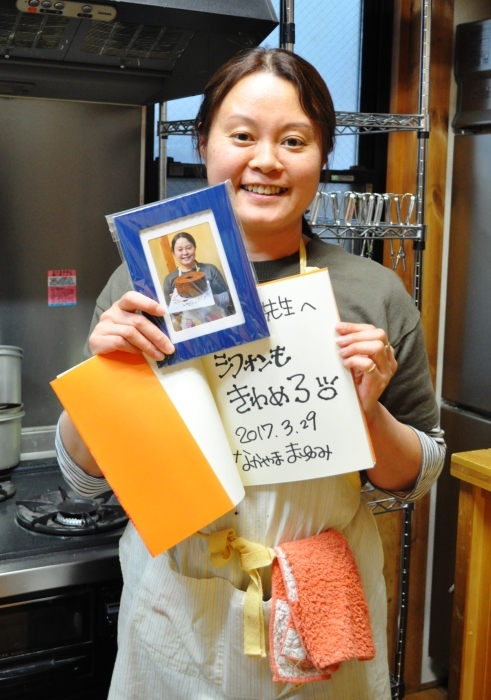 先生へ
シフォンも
きわめる
2017.3.29
なかやま まゆみ